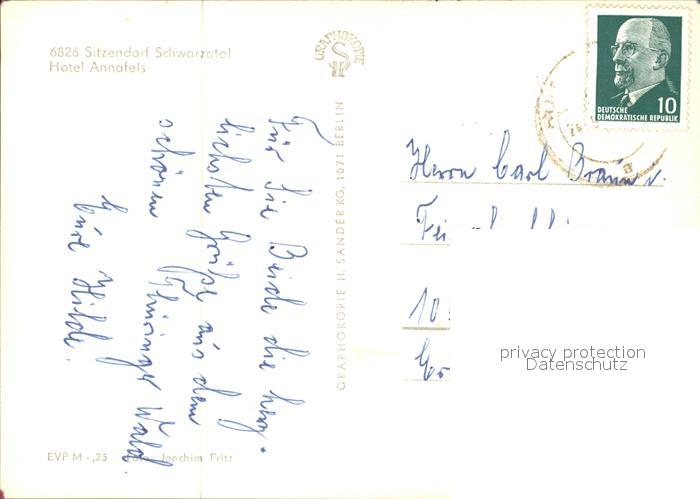 6826 Sitzendorf Schwarzatal
Hotel Annafels
GRAPHOKOPIE
Für Sie Beide die herz-
lichsten Grüße aus dem
schönen Thüringer Wald
Eure Hilde.
EVP M -,25 Foto: Joachim Fritz
GRAPHOKOPIE H. SANDER KG, 1071 BERLIN
10
DEUTSCHE
DEMOKRATISCHE REPUBLIK
Herrn Carl Braun
10
privacy protection
Datenschutz